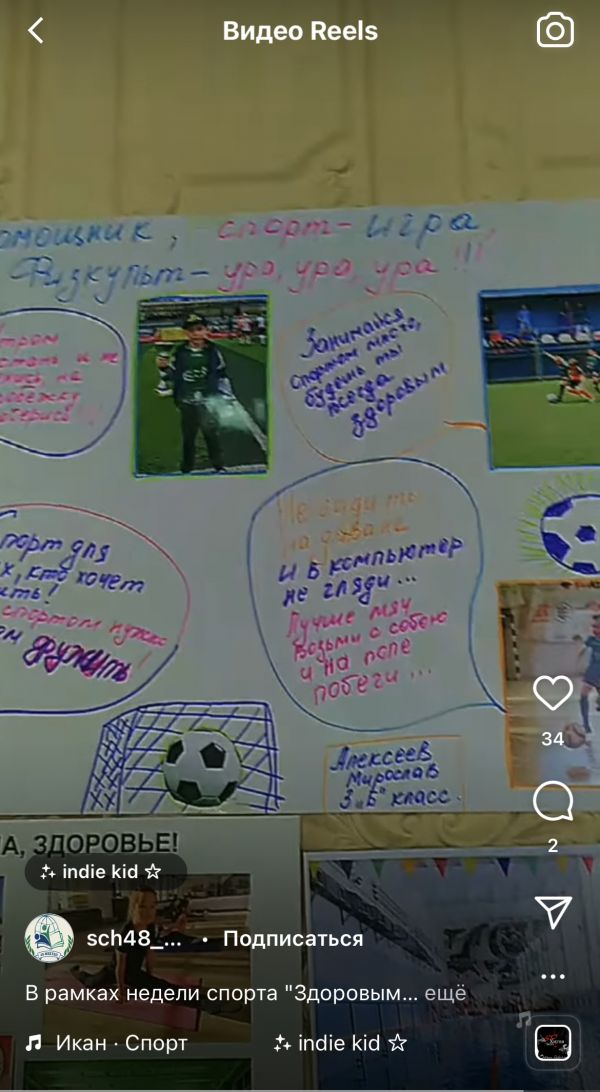 Видео Reels
омощник, спорт- игра,
Физкульт- ура, ура, ура !!!
и не
на
Занимайся
спортом много,
будешь ты
всегда
здоровым
порт для
х, кто хочет
ить!
спортом нужно
ем дружить!
Не сиди ты
на диване
И в компьютер
не гляди...
Лучше мяч
возьми с собою
и на поле
побеги...
Алексеев
Мирослав
3 „Б" класс.
А, ЗДОРОВЬЕ!
indie kid ☆
34
2
sch48_... • Подписаться
В рамках недели спорта "Здоровым... ещё
Икан · Спорт
indie kid ☆